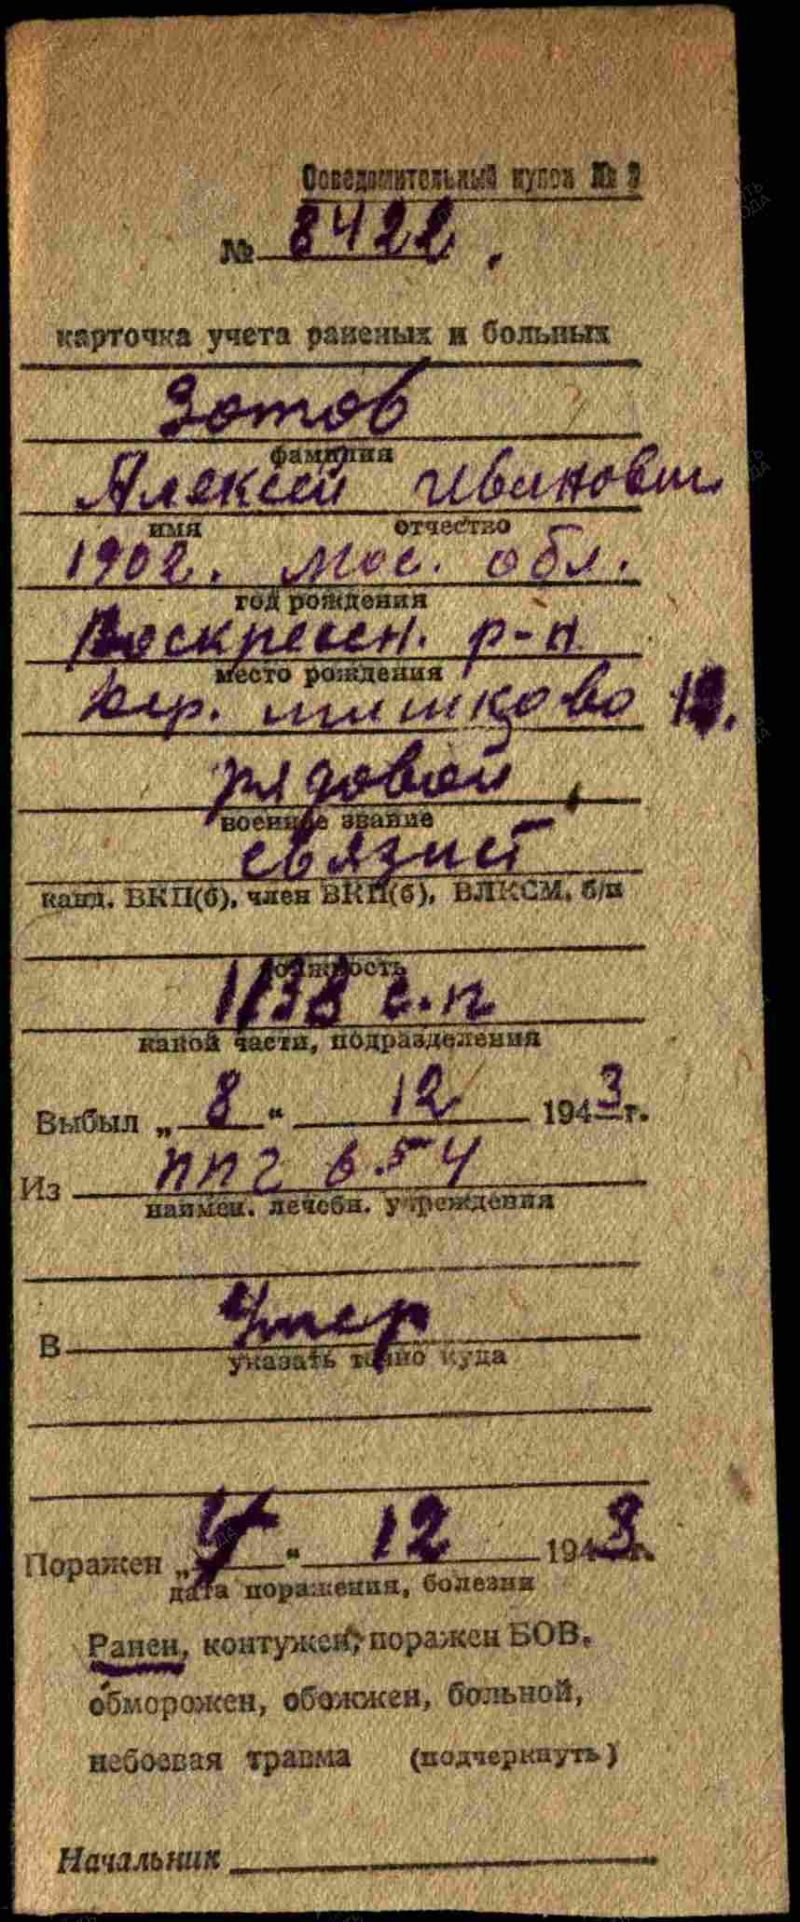 Осведомительный купон № 3
№ 8422.
карточка учета раненых и больных
Зотов
фамилия
Алексей Иванович
имя отчество
1902. Мос. обл.
год рождения
Воскресен. р-н
место рождения
дер. шишково
рядовой
военное звание
связист
канд. ВКП(б), член ВКП(б), ВЛКСМ, б/п
должность
1138 с.п
какой части, подразделения
Выбыл „ 8 “ 12 1943 г.
Из ппг 654
наимен. лечебн. учреждения
В Умер
указать точно куда
Поражен „ 4 “ 12 1943 г.
дата поражения, болезни
Ранен, контужен, поражен БОВ,
обморожен, обожжен, больной,
небоевая травма (подчеркнуть)
Начальник